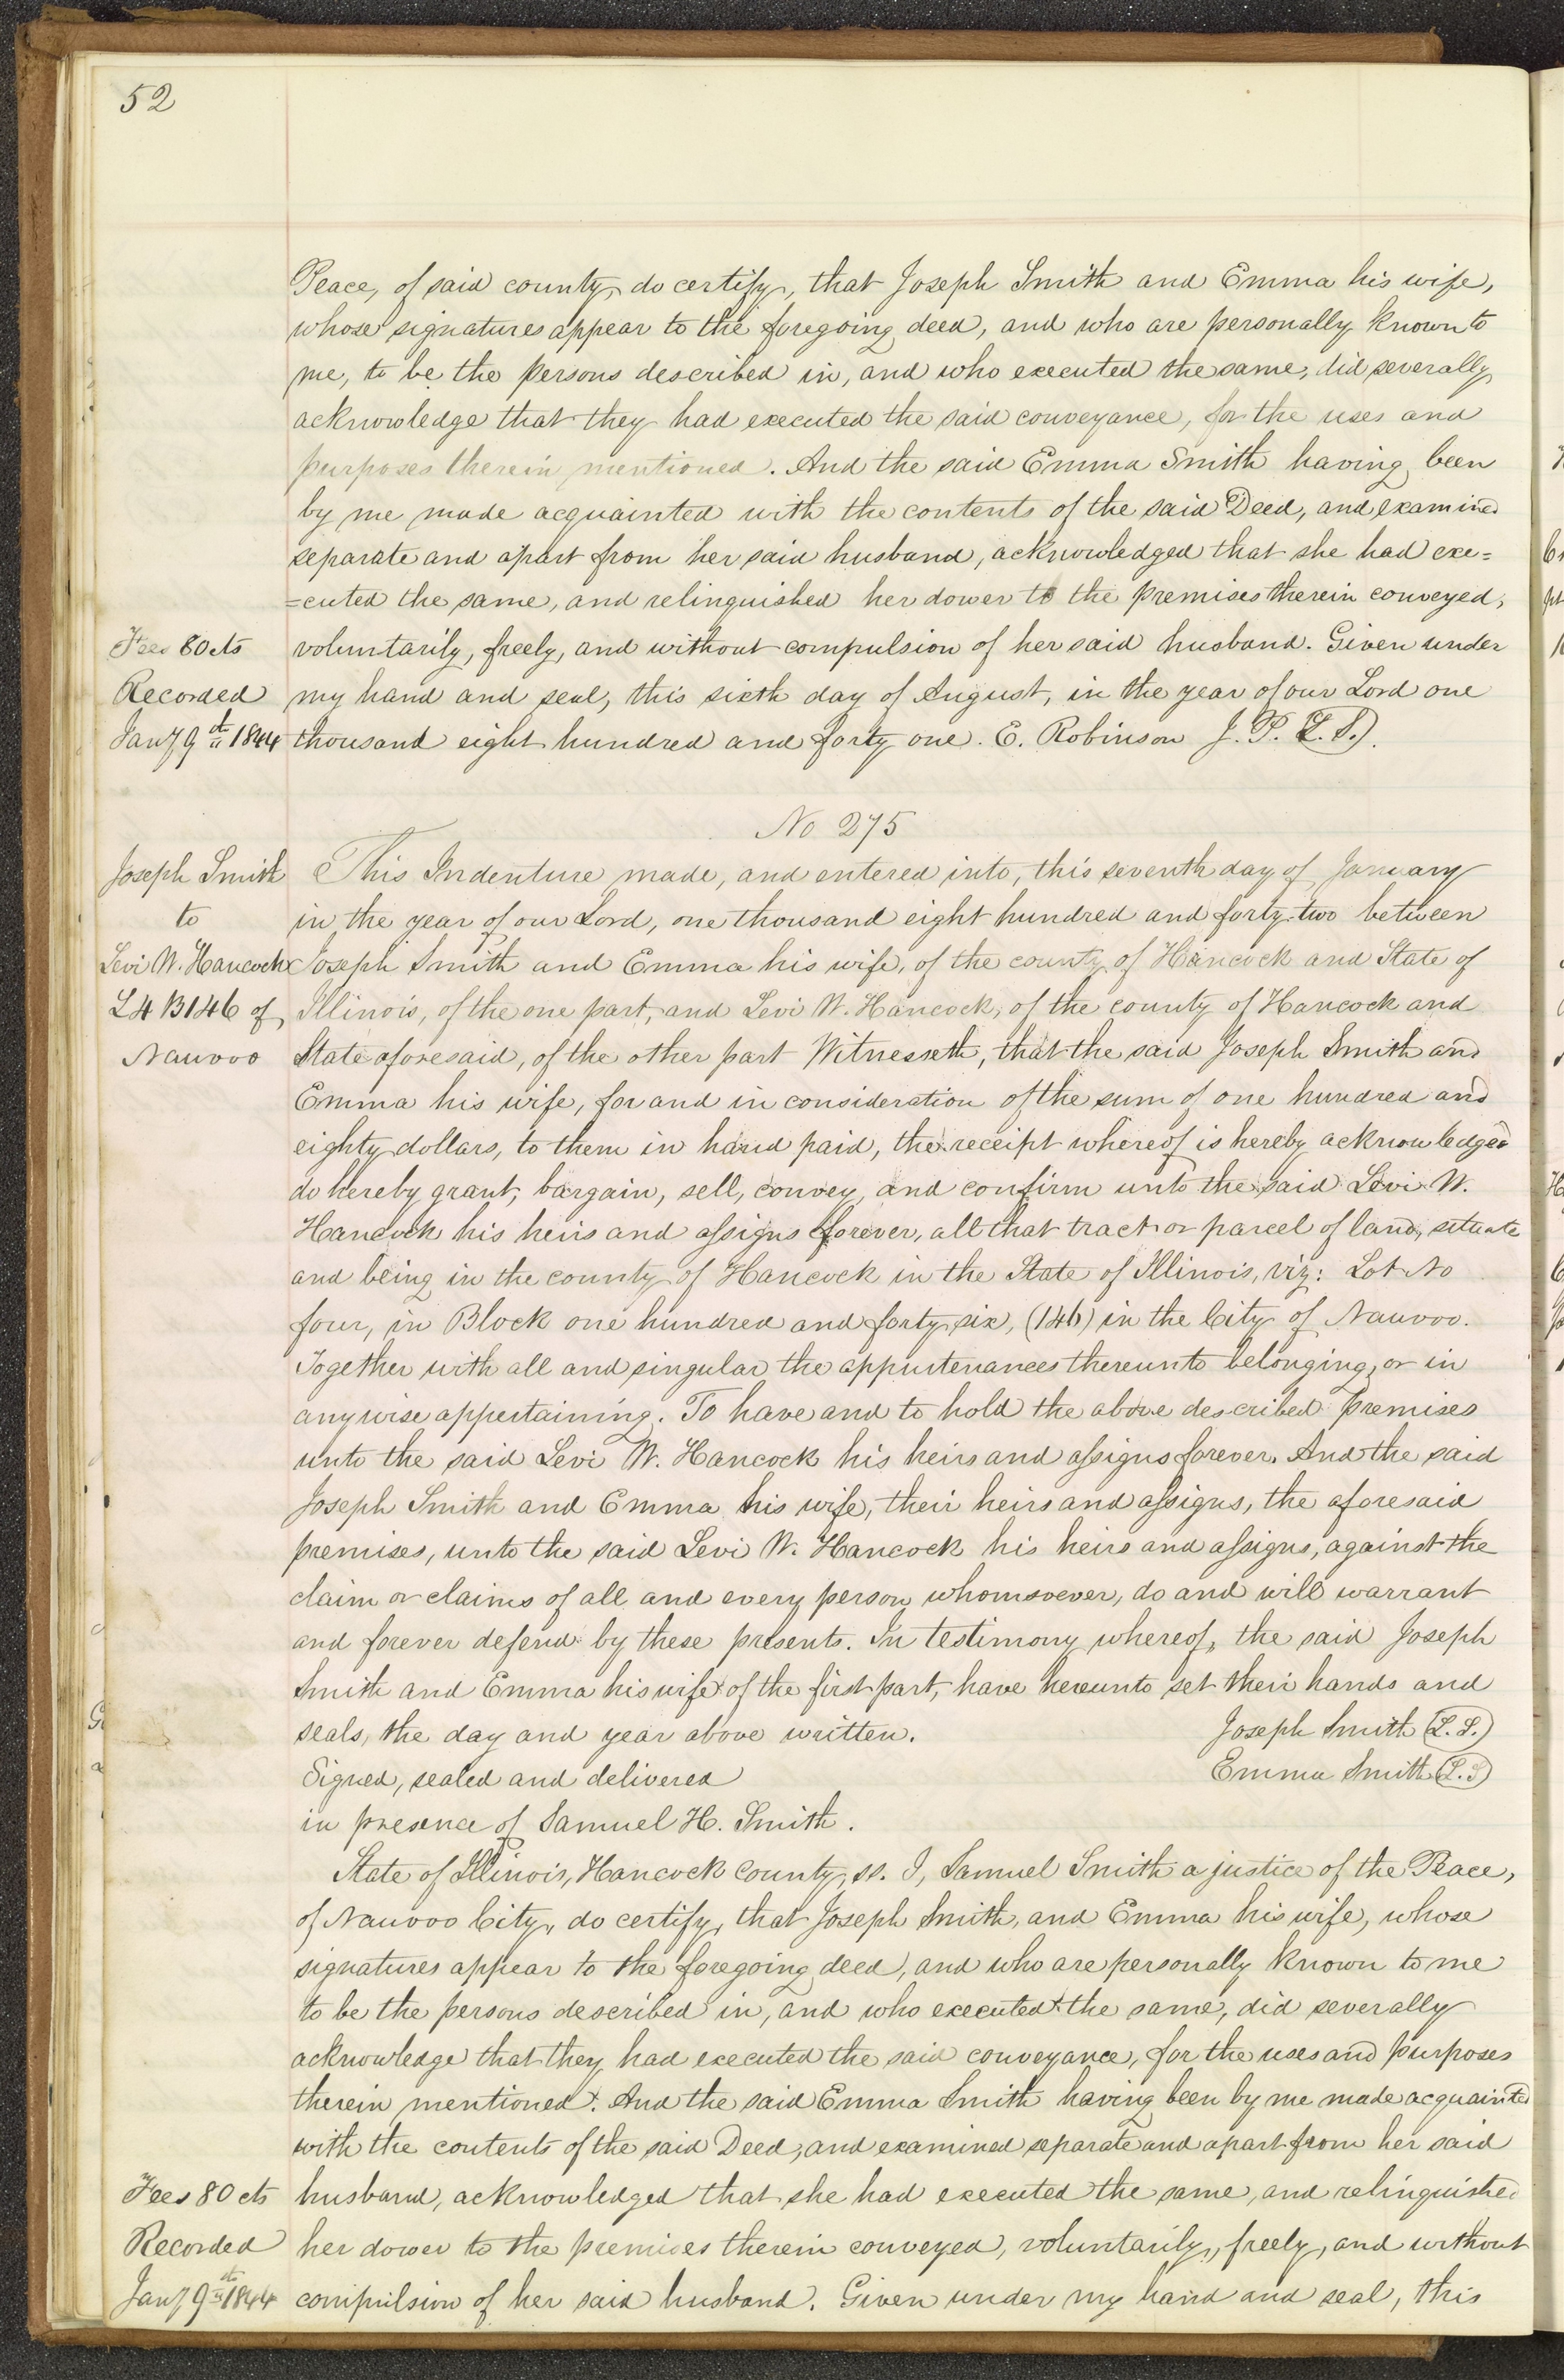 52
Peace, of said county, do certify, that Joseph Smith and Emma his wife,
whose signatures appear to the foregoing deed, and who are personally known to
me, to be the persons described in, and who executed the same, did severally
acknowledge that they had executed the said conveyance, for the uses and
purposes therein mentioned. And the said Emma Smith having been
by me made acquainted with the contents of the said Deed, and examined
separate and apart from her said husband, acknowledged that she had exe=
=cuted the same, and relinquished her dower to the premises therein conveyed,
Fees 80 cts voluntarily, freely, and without compulsion of her said husband. Given under
Recorded my hand and seal, this sixth day of August, in the year of our Lord one
Jany 9th 1844 thousand eight hundred and forty one. E. Robinson J. P. (L. S.).
No 275
Joseph Smith This Indenture made, and entered into, this seventh day of January
to in the year of our Lord, one thousand eight hundred and forty-two between
Levi W. Hancock Joseph Smith and Emma his wife, of the county of Hancock and State of
L4 B146 of Illinois, of the one part, and Levi W. Hancock, of the county of Hancock and
Nauvoo State aforesaid, of the other part Witnesseth, that the said Joseph Smith and
Emma his wife, for and in consideration of the sum of one hundred and
eighty dollars, to them in hand paid, the receipt whereof is hereby acknowledged
do hereby grant, bargain, sell, convey, and confirm unto the said Levi W.
Hancock his heirs and assigns forever, all that tract or parcel of land, situate
and being in the county of Hancock in the State of Illinois, viz: Lot No
four, in Block one hundred and forty six, (146) in the City of Nauvoo.
Together with all and singular the appurtenances thereunto belonging, or in
anywise appertaining. To have and to hold the above described premises
unto the said Levi W. Hancock his heirs and assigns forever. And the said
Joseph Smith and Emma his wife, their heirs and assigns, the aforesaid
premises, unto the said Levi W. Hancock his heirs and assigns, against the
claim or claims of all and every person whomsoever, do and will warrant
and forever defend by these presents. In testimony whereof, the said Joseph
Smith and Emma his wife of the first part, have hereunto set their hands and
seals, the day and year above written. Joseph Smith (L. S.)
Signed, sealed and delivered Emma Smith (L. S)
in presence of Samuel H. Smith.
State of Illinois, Hancock County, ss. I, Samuel Smith a justice of the Peace,
of Nauvoo City, do certify, that Joseph Smith, and Emma his wife, whose
signatures appear to the foregoing deed, and who are personally known to me
to be the persons described in, and who executed the same, did severally
acknowledge that they had executed the said conveyance, for the uses and purposes
therein mentioned. And the said Emma Smith having been by me made acquainted
with the contents of the said Deed, and examined separate and apart from her said
Fees 80 cts husband, acknowledged that she had executed the same, and relinquished
Recorded her dower to the premises therein conveyed, voluntarily, freely, and without
Jany 9th 1844 compulsion of her said husband. Given under my hand and seal, this